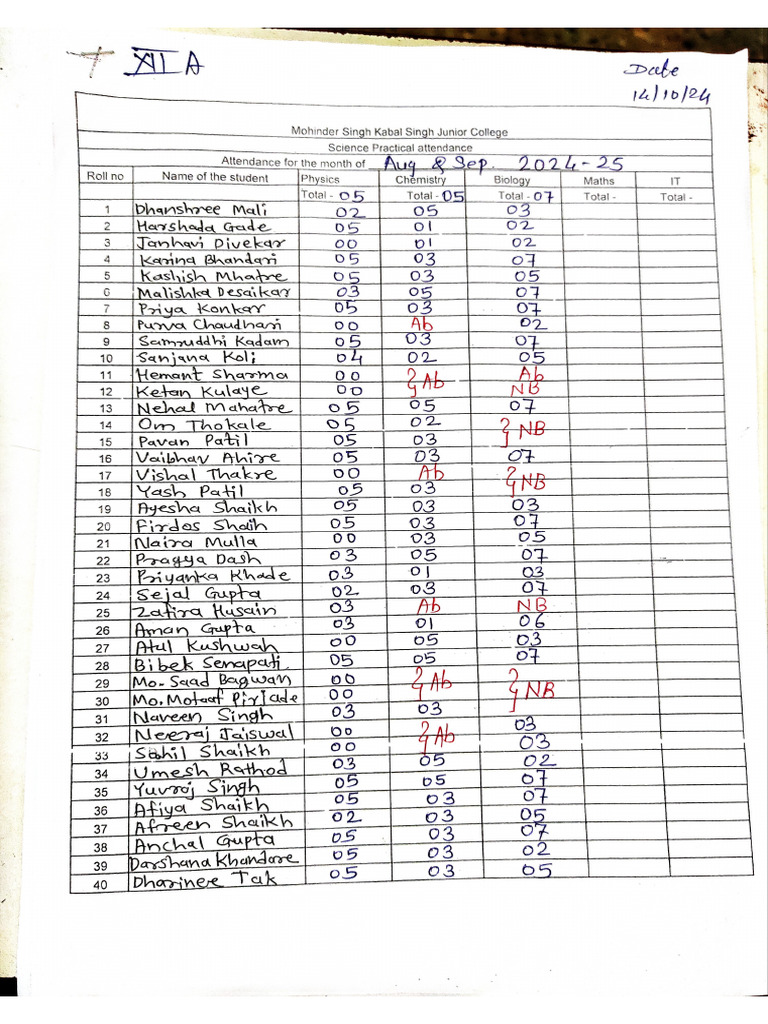 XII A
Date
14/10/24
Mohinder Singh Kabal Singh Junior College
Science Practical attendance
Attendance for the month of Aug & Sep. 2024-25
Roll no Name of the student Physics Chemistry Biology Maths IT
Total - 05 Total - 05 Total - 07 Total - Total -
1 Dhanshree Mali 02 05 03
2 Harshada Gade 05 01 02
3 Janhavi Divekar 00 01 02
4 Karina Bhandari 05 03 07
5 Kashish Mhatre 05 03 05
6 Malishka Desaikar 03 05 07
7 Priya Konkar 05 03 07
8 Purva Chaudhari 00 Ab 02
9 Samruddhi Kadam 05 03 07
10 Sanjana Koli 04 02 05
11 Hemant Sharma 00 Ab Ab
12 Ketan Kulaye 00 NB
13 Nehal Mahatre 05 05 07
14 Om Thokale 05 02 NB
15 Pavan Patil 05 03
16 Vaibhav Ahire 05 03 07
17 Vishal Thakre 00 Ab NB
18 Yash Patil 05 03
19 Ayesha Shaikh 05 03 03
20 Firdos Shaih 05 03 07
21 Naira Mulla 00 03 05
22 Pragya Dash 03 05 07
23 Priyanka Khade 03 01 03
24 Sejal Gupta 02 03 07
25 Zafira Husain 03 Ab NB
26 Aman Gupta 03 01 06
27 Atul Kushwah 00 05 03
28 Bibek Senapati 05 05 07
29 Mo. Saad Bagwan 00 Ab NB
30 Mo. Motaaf Pirjade 00
31 Naveen Singh 03 03
32 Neeraj Jaiswal 00 Ab 03
33 Sahil Shaikh 00 03
34 Umesh Rathod 03 05 02
35 Yuvroj Singh 05 05 07
36 Afiya Shaikh 05 03 07
37 Afreen Shaikh 02 03 05
38 Anchal Gupta 05 03 07
39 Darshana Khandare 05 03 02
40 Dharinee Tak 05 03 05